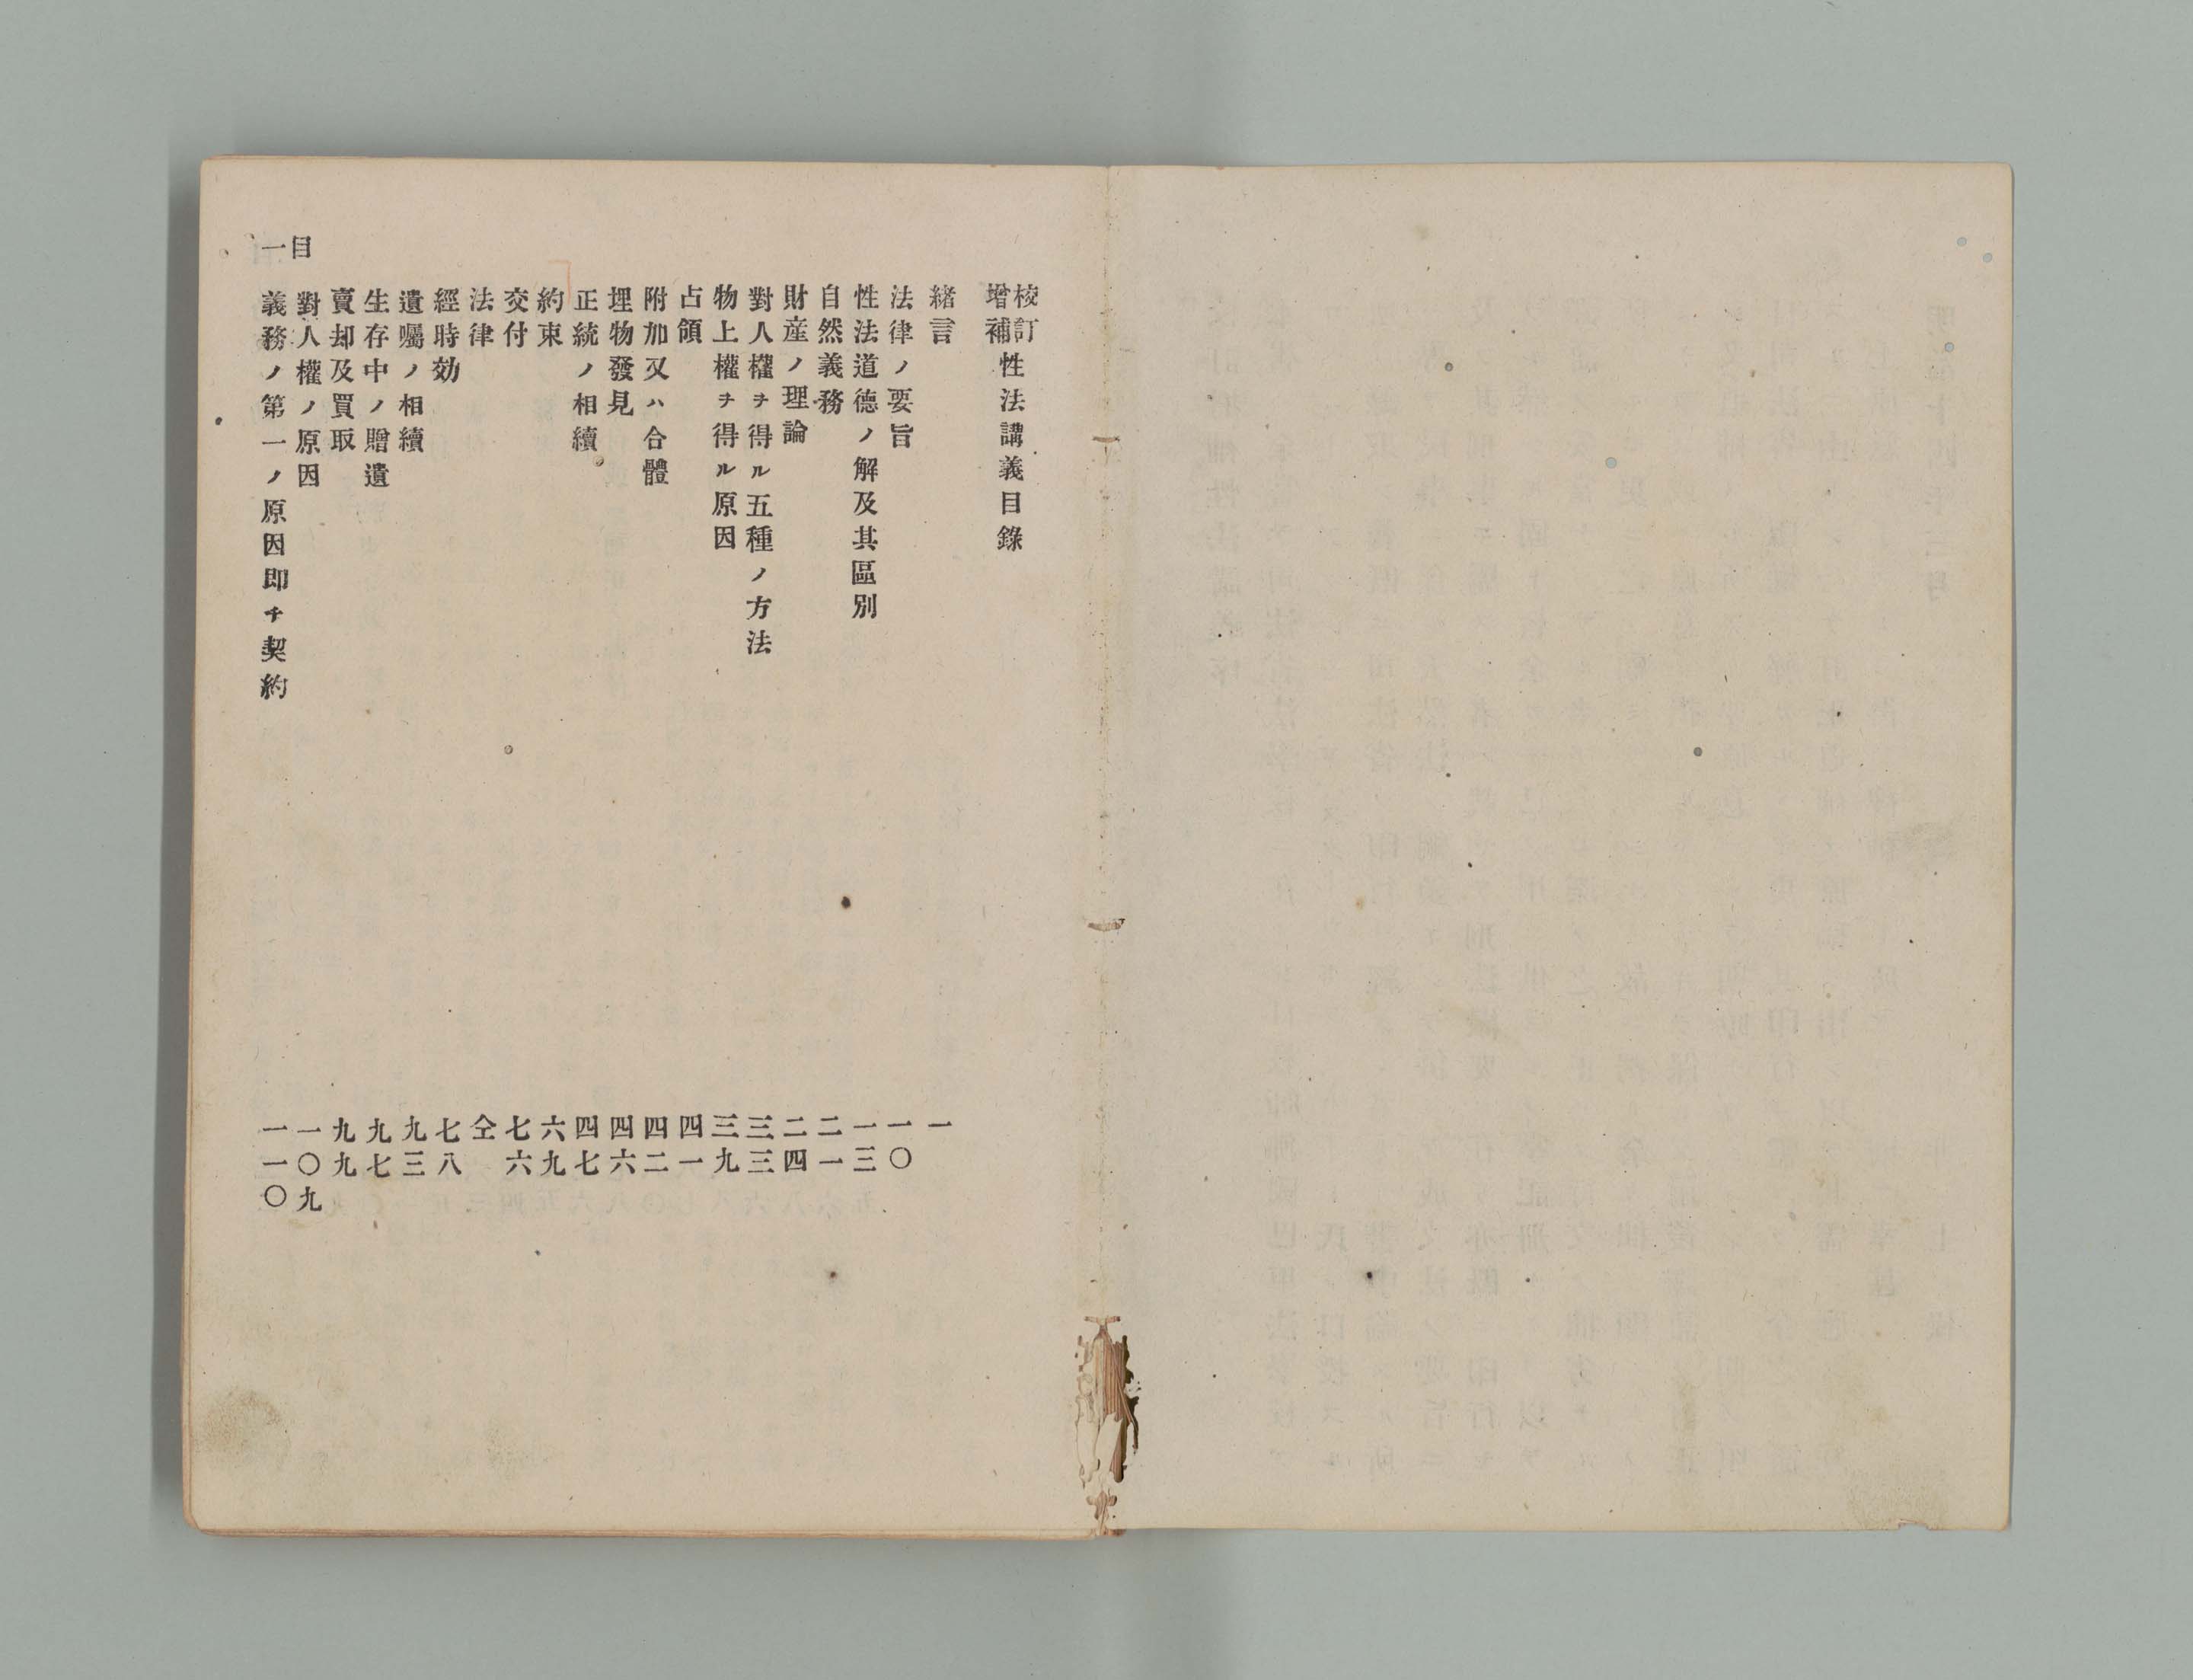 校訂增補性法講義目錄
緒言 一
法律ノ要旨 一〇
性法道德ノ解及其區別 一三
自然義務 二一
財産ノ理論 二四
對人權ヲ得ル五種ノ方法 三三
物上權ヲ得ル原因 三九
占領 四一
附加又ハ合體 四二
埋物發見 四六
正統ノ相續 四七
約束 六九
交付 七六
法律 仝
經時効 七八
遺囑ノ相續 九三
生存中ノ贈遺 九七
賣却及買取 九九
對人權ノ原因 一〇九
義務ノ第一ノ原因即チ契約 一一〇
目一